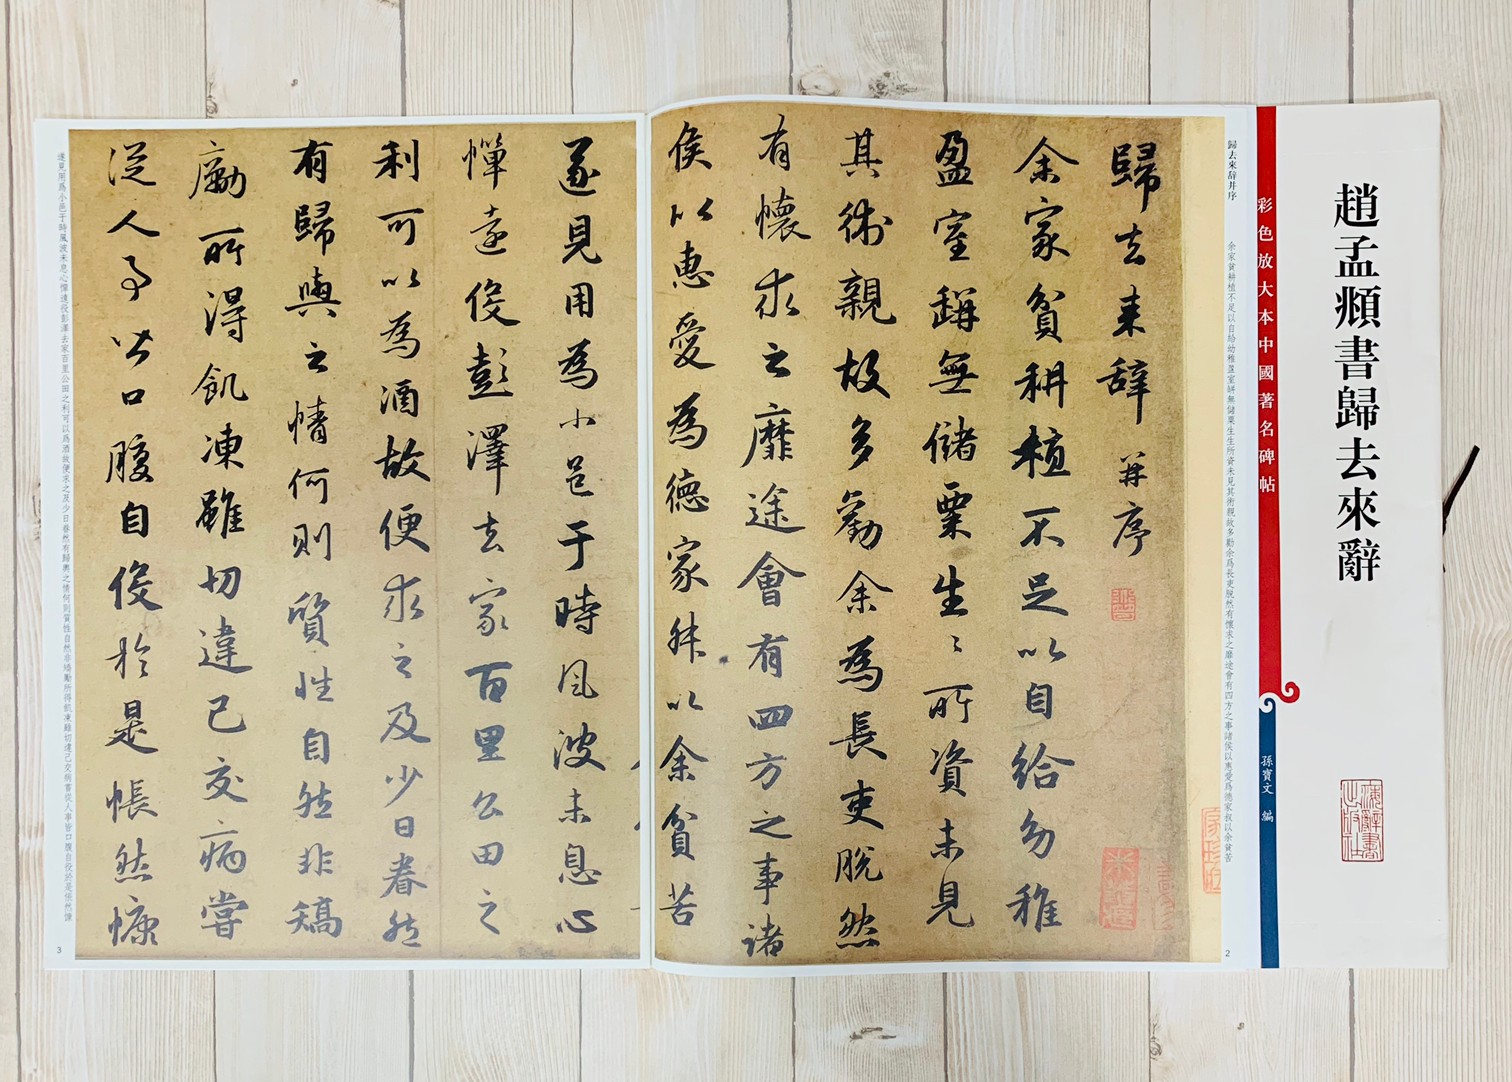 趙孟頫書歸去來辭
彩色放大本中國著名碑帖
孫寶文 編
歸去來辞并序
余家貧耕植不足以自給幼稚盈室缾無儲粟生生所資未見其術親故多勸余爲長吏脱然有懷求之靡途會有四方之事諸侯以惠愛爲德家叔以余貧苦
2
歸去来辞并序
余家貧耕植不足以自給幼稚
盈室缾無儲粟生〻所資未見
其術親故多勸余為長吏脫然
有懷求之靡途會有四方之事諸
侯以惠愛為德家叔以余貧苦
遂見用為小邑于時風波未息心
憚遠役彭澤去家百里公田之
利可以為酒故便求之及少日眷然
有歸與之情何則質性自然非矯
勵所得飢凍雖切違己交病嘗
從人事皆口腹自役於是悵然慷
遂見用爲小邑于時風波未息心憚遠役彭澤去家百里公田之利可以爲酒故便求之及少日眷然有歸與之情何則質性自然非矯勵所得飢凍雖切違己交病嘗從人事皆口腹自役於是悵然慷
3